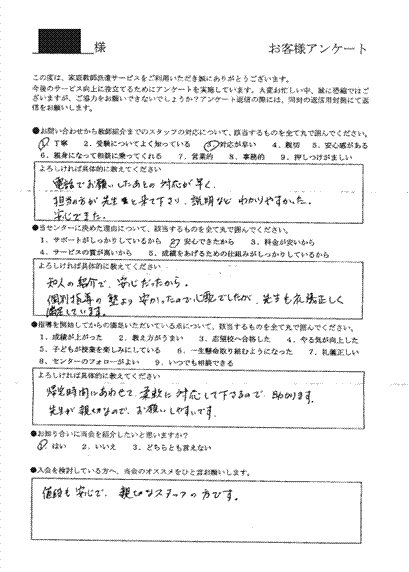 様
お客様アンケート
この度は、家庭教師派遣サービスをご利用いただき誠にありがとうございます。
今後のサービス向上に役立てるためにアンケートを実施しています。大変お忙しい中、誠に恐縮ではございますが、ご協力をお願いできないでしょうか?アンケート返信の際には、同封の返信用封筒にて返信をお願いします。
●お問い合わせから教師紹介までのスタッフの対応について、該当するものを全て丸で囲んでください。
1. 丁寧 2. 受験についてよく知っている 3. 対応が早い 4. 親切 5. 安心感がある
6. 親身になって相談に乗ってくれる 7. 営業的 8. 事務的 9. 押しつけがましい
よろしければ具体的に教えてください
電話でお願いしたあとの対応が早く、
担当の方が先生と来て下さり、説明など わかりやすかった。
安心できた。
●当センターに決めた理由について、該当するものを全て丸で囲んでください。
1. サポートがしっかりしているから 2. 安心できたから 3. 料金が安いから
4. サービスの質が高いから 5. 成績をあげるための仕組みがしっかりしているから
よろしければ具体的に教えてください
知人の紹介で、安心だったから。
個別指導の塾より安かったので心配でしたが、先生も礼儀正しく
満足しています。
●指導を開始してからの満足いただいている点について、該当するものを全て丸で囲んでください。
1. 成績が上がった 2. 教え方がうまい 3. 志望校へ合格した 4. やる気が向上した
5. 子どもが授業を楽しみにしている 6. 一生懸命取り組むようになった 7. 礼儀正しい
8. センターのフォローがよい 9. いつでも相談できる
よろしければ具体的に教えてください
帰宅時間にあわせて、柔軟に対応して下さるので、助かります。
先生が親切なので、お願いしやすいです。
●お知り合いに当会を紹介したいと思いますか?
1. はい 2. いいえ 3. どちらとも言えない
●入会を検討している方へ、当会のオススメをひと言お願いします。
値段も安心で、親切なスタッフの方です。